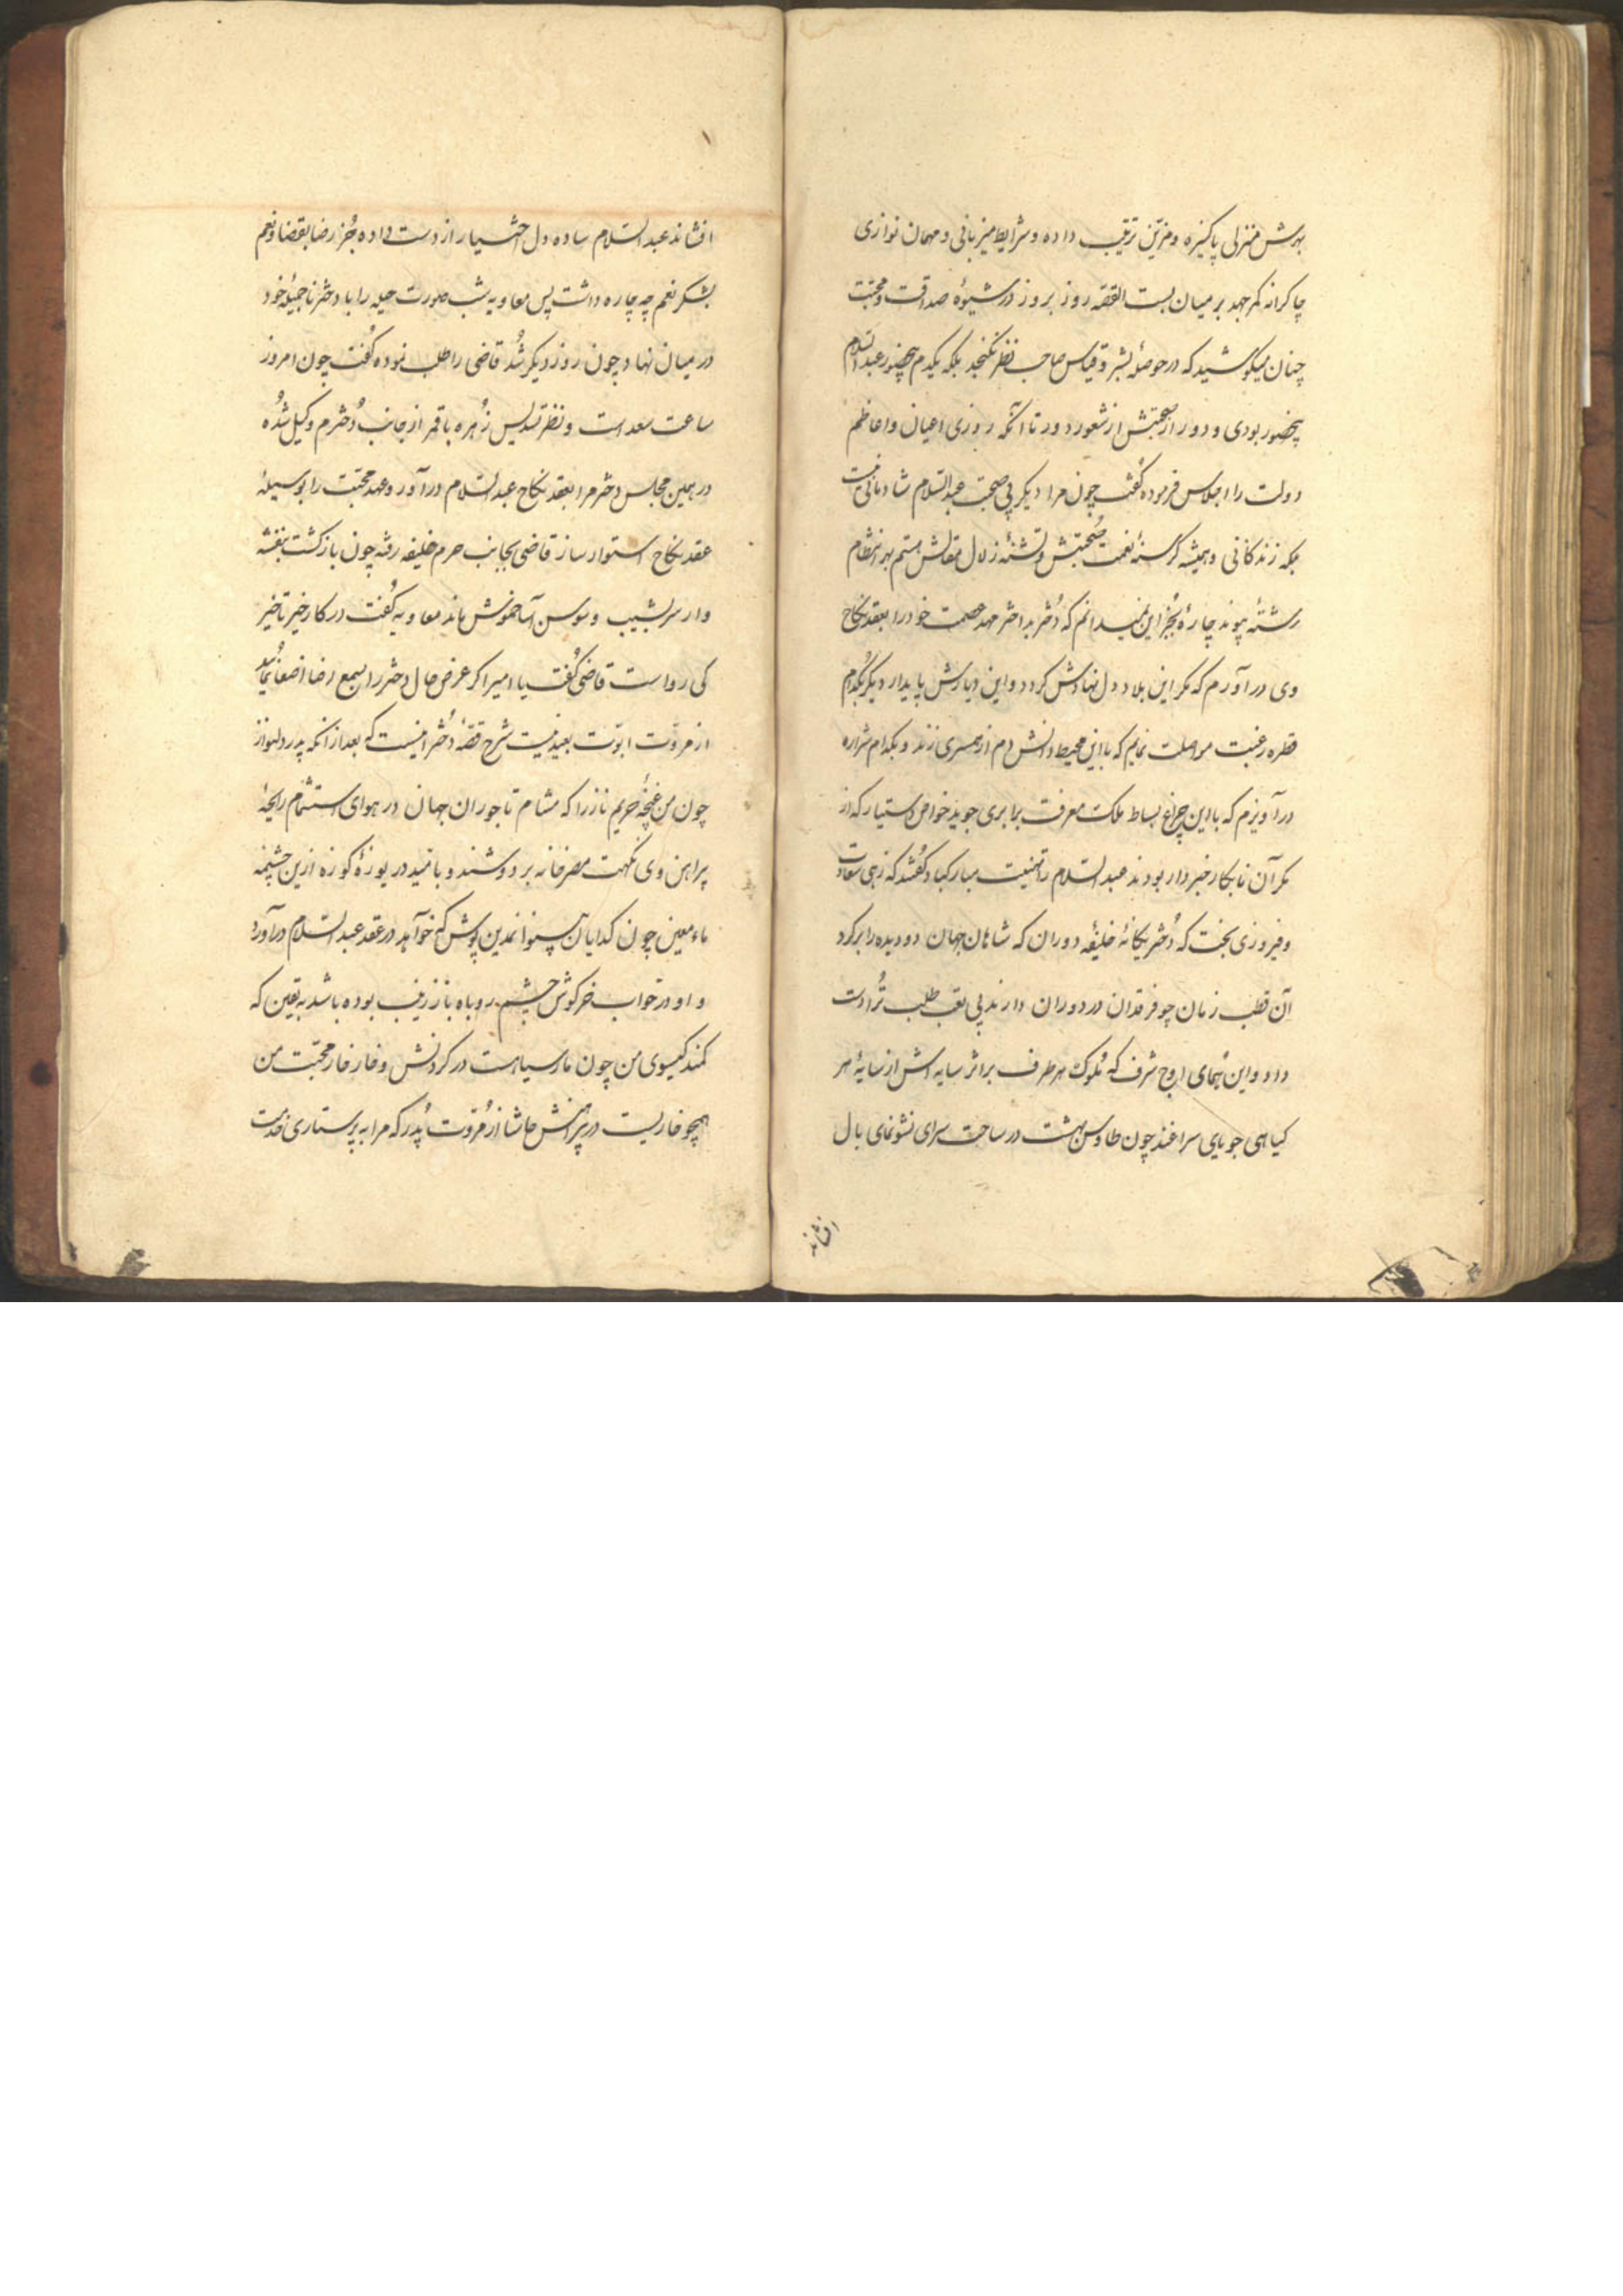 بهرش منزلی پاکیزه و مزین ترتیب داده و شرایط میزبانی و مهمان نوازی
چاکرانه کمر جهد بر میان بست القصه روز بروز در شیوهٔ صداقت و محبت
چنان میکوشید که در حوصلهٔ بشر و قیاس صاحب نظر نکنجد بلکه یکدم بیحضور عبد السلام
بیحضور بودی و دور از صحبتش از شعور دور تا آنکه روزی اعیان و اعاظم
دولت را اجلاس فرموده گفت چون مرا دیگر بی صحبت عبد السلام شادمانی نیست
بلکه زندکانی و همیشه کرسنهٔ نعمت صحبتش و تشنهٔ زلال مقالش هستم بهر انتظام
رشتهٔ پیوند چارهٔ بجز این نمیدانم که دختر بد اختر مهد عصمت خود را بعقد نکاح
وی در آورم که مکر این بلاد دل نهادش کردد و این دیارش پایدار دیگر بکدام
قطره رغبت مواصلت نمایم که با این محیط دانش دم از همسری زند و بکدام شراره
در آویزم که با این چراغ بساط ملک معرفت برابری جوید خواص دستیار که از
مکر آن نابکار خبردار بودند عبد السلام را تهنیت مبارکباد گفتند که زهی سعادت
و فیروزی بخت که دختر یکانهٔ خلیفهٔ دوران که شاهان جهان دو دیده را بر کرد
آن قطب زمان چو فرقدان در دوران دارند پی تعب طلب ترا دست
داد و این همای اوج شرف که ملوک هر طرف بر اثر سایه اش از سایهٔ هر
کیاهی جویای سراغند چون طاوس بهشت در ساحت سرای نشو نمای بال
افشاند
افشاند عبد السلام ساده دل اختیار از دست داده جز رضا بقضا و نعم
بشکر نعم چه چاره داشت پس معاویه شب صورت حیله را با دختر ناجمیلهٔ خود
در میان نهاد چون روز دیکر شد قاضی را طلب نموده گفت چون امروز
ساعت سعد است و نظر تسدیس زهره با قمر از جانب دخترم وکیل شده
در همین مجلس دختر مرا بعقد نکاح عبد السلام درآور و عهد محبت را بوسیلهٔ
عقد نکاح استوار ساز قاضی بجانب حرم خلیفه رفته چون بازکشت بنفشه
وار سر بشیب و سوسن آسا خموش ماند معاویه گفت در کار خیر تاخیر
کی رواست قاضی گفت یا امیر اگر عرض حال دختر را بسمع رضا اصغا نمایید
از مروت ابوت بعید نیست شرح قصهٔ دختر اینست که بعد از آنکه پدر دلنواز
چون من غنچهٔ حریم ناز را که مشام تاجوران جهان در هوای استشمام رایحهٔ
پیراهن وی نکهت مصر خانه بر دوشند و بامید دریوزهٔ کوزه ازین چشمه
ماء معین چون کدایان پوش که خواهد در عقد عبد السلام در آورد
و او در خواب خرگوش چشم روباه باز زینب بوده باشد به یقین که
کمند کیسوی من چون مار سیاهست در کردنش و خار خار محبت من
همچو خاریست در پیراهنش حاشا از مروت پدر که مرا به پرستاری خدمت